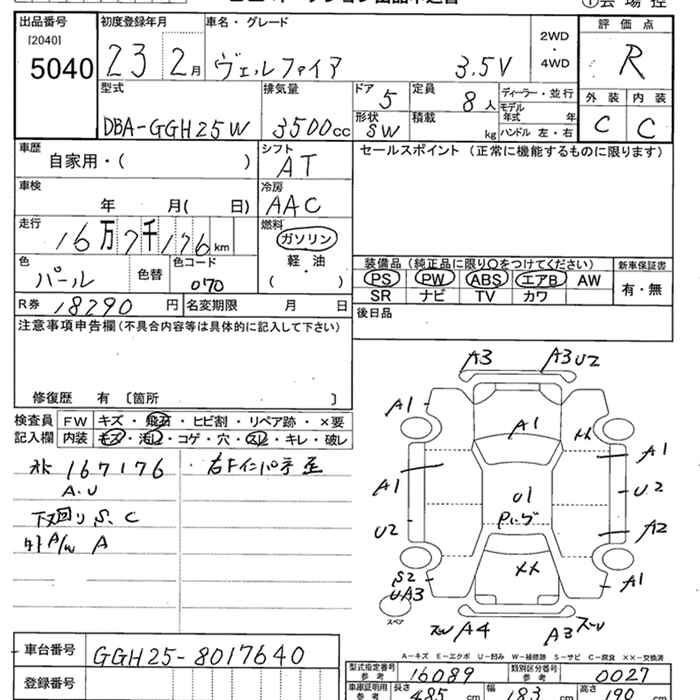 出品番号
[2040]
5040
初度登録年月
23 2月
車名・グレード
ヴェルファイア 3.5V
2WD
・
4WD
評価点
R
外装 内装
C C
型式
DBA-GGH25W
排気量
3500cc
ドア 5
定員 8人
ディーラー・並行
モデル年式 年
形状 SW
積載 kg
ハンドル 左・右
車歴
自家用・( )
シフト
AT
セールスポイント (正常に機能するものに限ります)
車検
年 月( 日)
冷房
AAC
走行
16万7千176km
燃料
ガソリン
軽・油
( )
色
パール
色替
色コード
070
装備品 (純正品に限り○をつけてください)
PS PW ABS エアB AW
SR ナビ TV カワ
新車保証書
有・無
R券 18290円
名変期限 月 日
後日品
注意事項申告欄(不具合内容等は具体的に記入して下さい)
修復歴 有 〔箇所 〕
検査員
記入欄
FW キズ・飛石・ヒビ割・リペア跡・×要
内装 キズ・汚れ・コゲ・穴・スレ・キレ・破レ
167176
A.U
下回りS.C
A/W A
A3 A3U2
A1 A1
A1 A1
U1
U2 U2
A2
S2
UA3
A1
A4 A3
スペア
A-キズ E-エクボ U-凹み W-補修跡 S-サビ C-腐食 ××-交換済
車台番号
GGH25-8017640
登録番号
型式指定番号
参考
16089
類別区分番号
参考
0027
車庫証明用
参考
長さ 485cm
幅 183cm
高さ 190cm